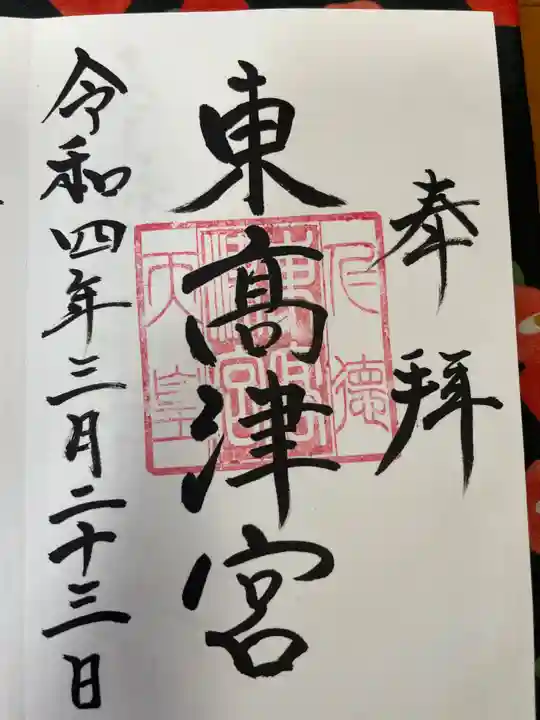 奉拜
東髙津宮
仁德
東高
津宮
天皇
令和四年三月二十三日